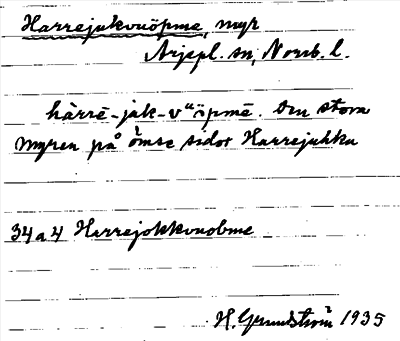 Harrejukvuöpme, myr
Arjepl. sn, Norrb. l.
hàrrē-jàk-vᵘöpmē. Den stora
myren på ömse sidor Harrejuhka
34a4 Harrejokkvuobme
H. Grundström 1935